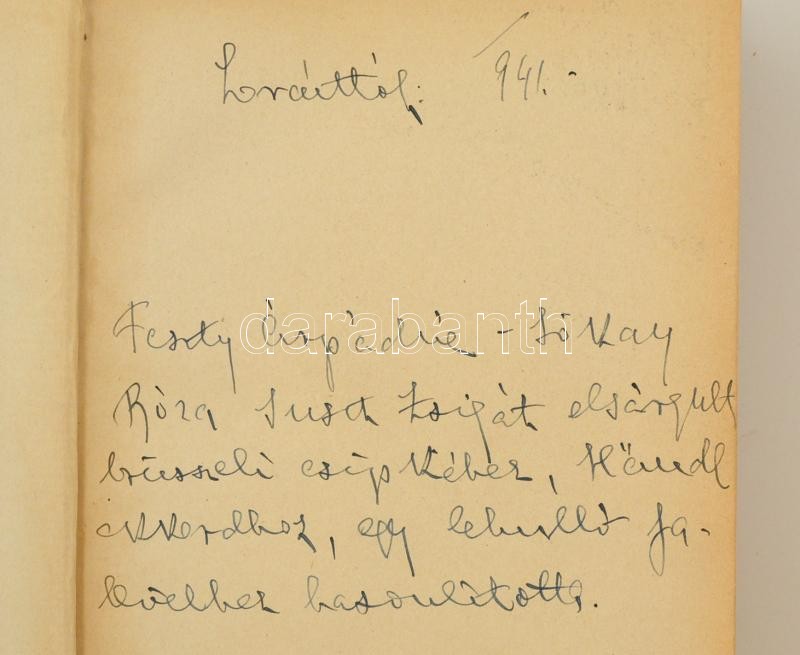 Loránttól. /941.-
Feszty Árpádné - Jókay
Róza Justh Zsigát elsárgult
brüsseli csipkéhez, Händl
akkordhoz, egy lehulló fa-
levélhez hasonlította.
darabanth